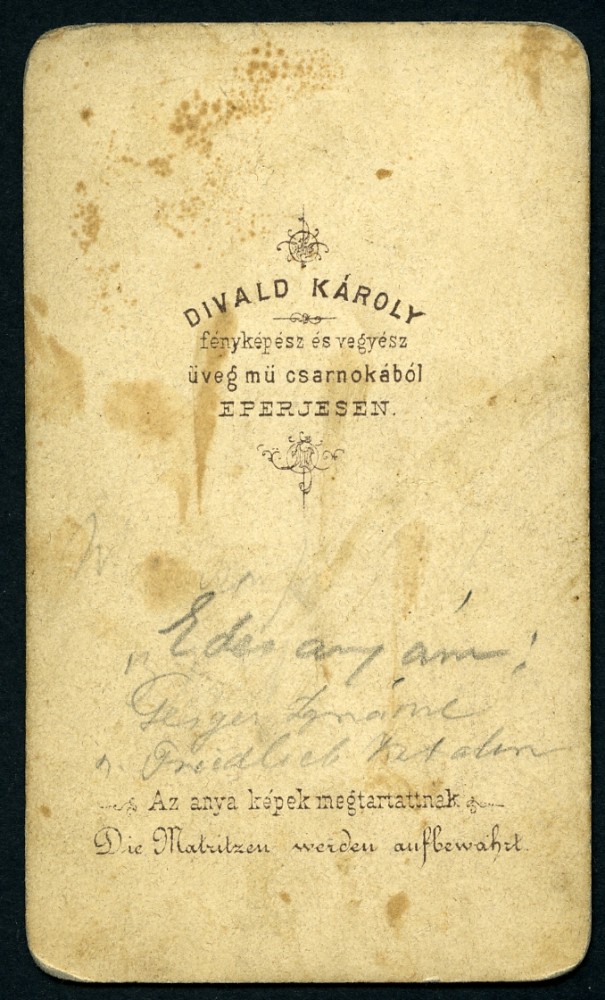 DIVALD KÁROLY
fényképész és vegyész
üveg mű csarnokából
EPERJESEN.
Edes anyám!
Ignácné
Friedlieb Katalin
Az anya képek megtartattnak
Die Matritzen werden aufbewahrt.